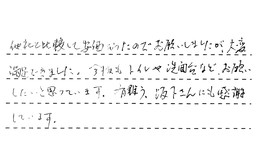 他社と比較して安価だったのでお願いしましたが大変
満足できました。今後もトイレや洗面台など、お願い
したいと思っています。有難う、坂下さんにも感謝
しています。